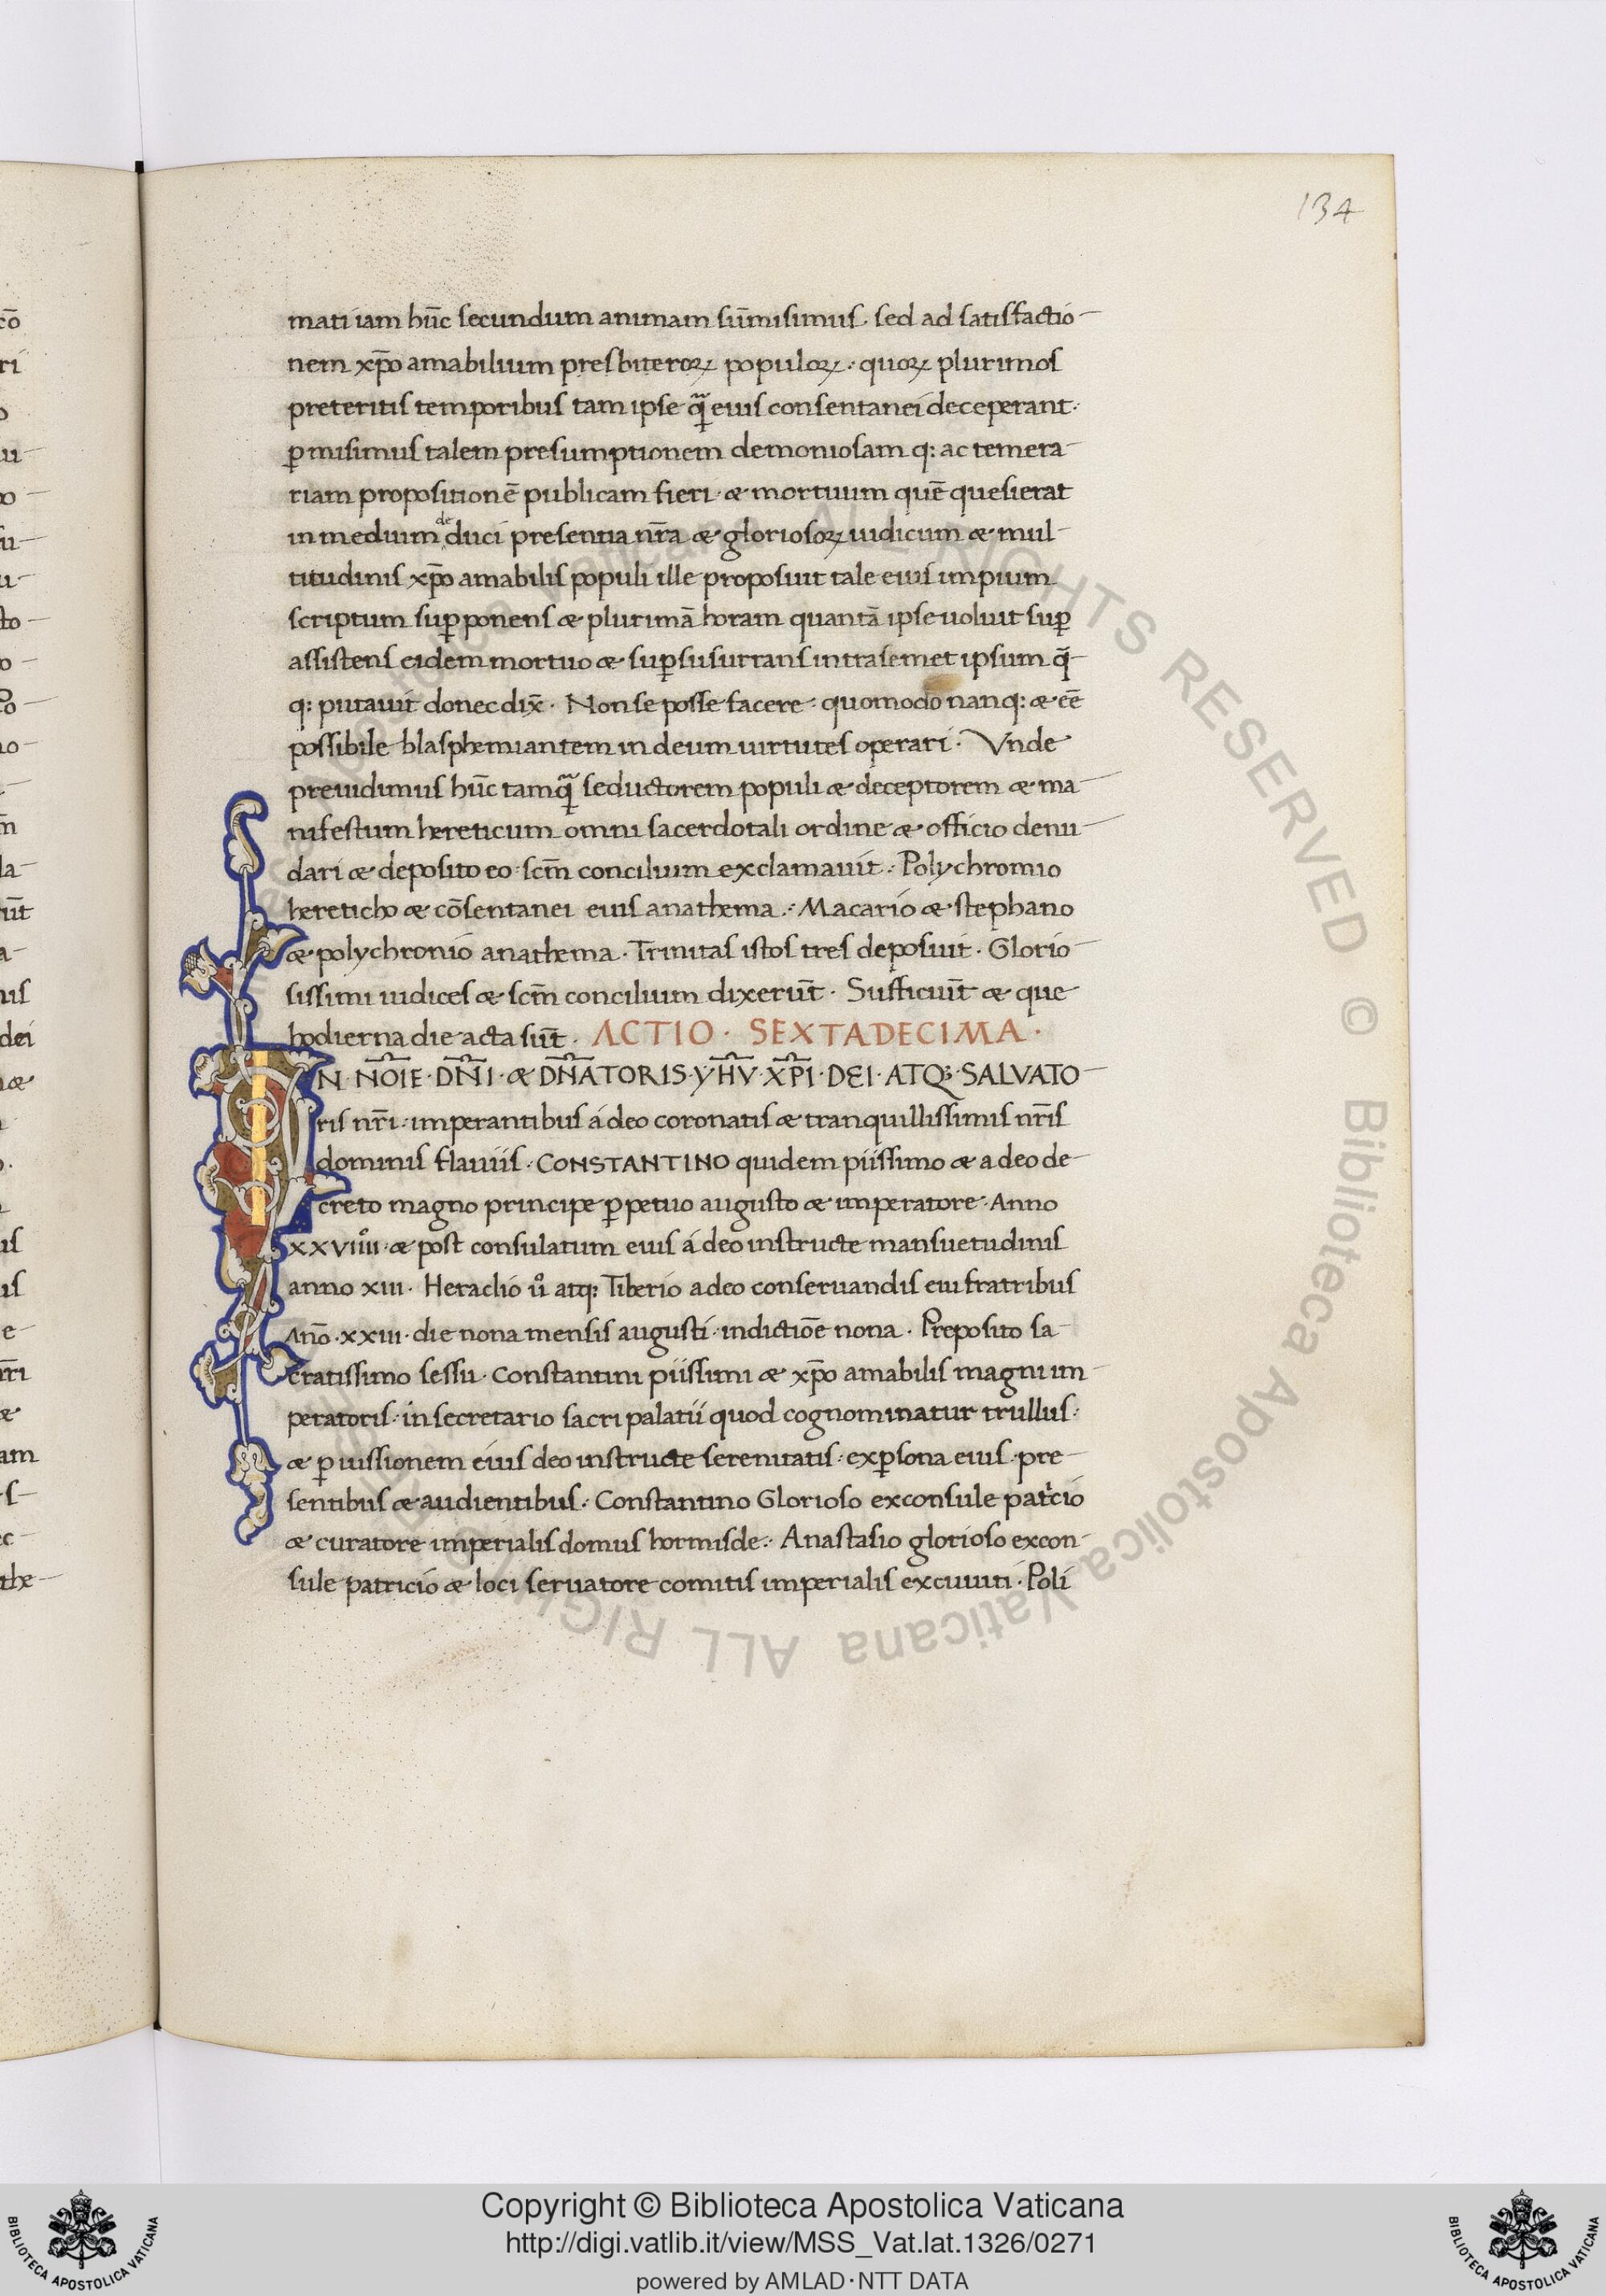 134
mati iam hūc secundum animam sūmisimus. sed ad satisfactio
nem xp̄o amabilium presbiteroꝝ populoꝝ: quoꝝ plurimos
preteritis temporibus tam ipse ꝗ̄ eius consentanei deceperant.
ꝑmisimus talem presumptionem demoniosam q: ac temera
riam propositionē publicam fieri. æ mortuum quē quesierat
in medium deduci presentia nr̄a æ gloriosoꝝ iudicum æ mul
titudinis xp̄o amabilis populi ille proposuit tale eius impium
scriptum suꝑponens æ plurimā horam quantā ipse uoluit suꝑ
assistens eidem mortuo æ suꝑsusurrans intra semet ipsum q̄
q: putauit donec dix̄. Non se posse facere: quomodo nanq: æ eē
possibile blasphemiantem in deum uirtutes operari. Vnde
preuidimus hūc tamꝗ̄ seductorem populi æ deceptorem æ ma
nifestum hereticum omni sacerdotali ordine æ officio denu
dari æ deposito eo. scm̄ concilium exclamauit: Polychromio
hereticho æ cōsentanei eius anathema: Macario æ stephano
æ polychronio anathema. Trinitas istos tres deposuit. Glorio
sissimi iudices æ scm̄ concilium dixerūt. Sufficiūt æ que
hodierna die acta sūt. ACTIO. SEXTADECIMA.
IN NOIE. DN̄I. Æ DN̄ATORIS. YHV̄. XP̄I. DEI. ATQ; SALVATO
ris nr̄i: imperantibus á deo coronatis æ tranquillissimis nr̄is
dominis flauiis: CONSTANTINO quidem piissimo æ a deo de
creto magno principe ꝑpetuo augusto æ imperatore. Anno
xxviiıı°. æ post consulatum eius á deo instructe mansuetudinis
anno xiii. Heraclio u° atq: Tiberio a deo conseruandis eiu fratribus
Anō. xxiii. die nona mensis augusti. indictiōe nona. Preposito sa
cratissimo sessu. Constantini piissimi æ xp̄o amabilis magni im
peratoris. in secretario sacri palatii quod cognominatur trullus:
æ ꝑ iussionem eius deo instructe serenitatis: exꝑsona eius. pre
sentibus æ audientibus: Constantino Glorioso exconsule patⁱcio
æ curatore imperialis domus hormisde: Anastasio glorioso excon
sule patricio æ loci seruatore comitis imperialis excuuiti. Poli
Copyright © Biblioteca Apostolica Vaticana
http://digi.vatlib.it/view/MSS_Vat.lat.1326/0271
powered by AMLAD·NTT DATA